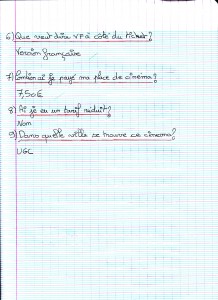 6) Que veut dire VF à côté du ticket?
Version française
7) Combien ai je payé ma place de cinéma?
7,50€
8) Ai je eu un tarif réduit?
Non
9) Dans quelle ville se trouve ce cinema?
UGC